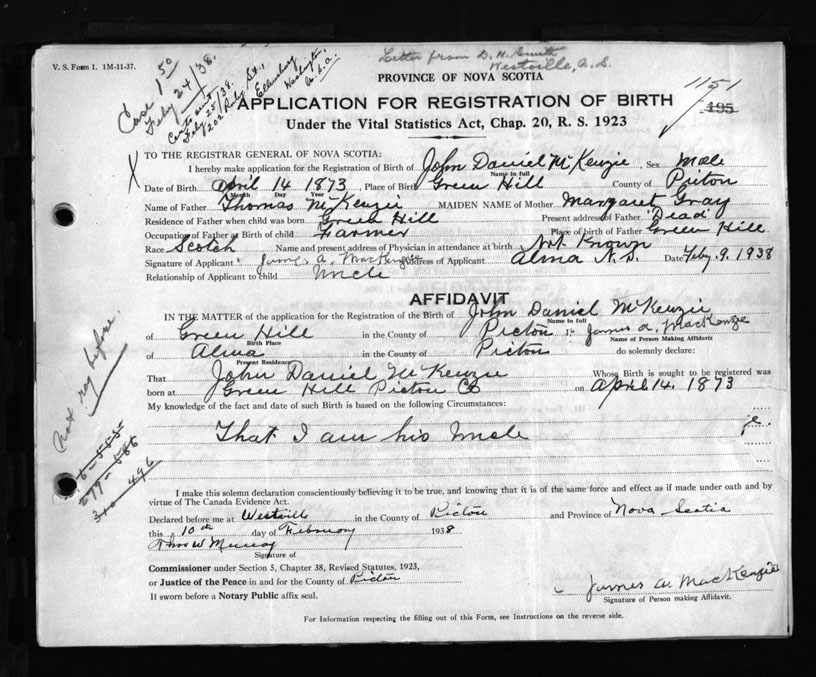 V. S. Form 1. 1M-11-37.
Case 1 50
Feby 24/38.
Cert sent
Feby 25/38.
202 Ruby St.,
Ellensburg
Washington,
U.S.A.
Letter from D. H. Smith
Westville, N.S.
PROVINCE OF NOVA SCOTIA
1151
495
APPLICATION FOR REGISTRATION OF BIRTH
Under the Vital Statistics Act, Chap. 20, R. S. 1923
X TO THE REGISTRAR GENERAL OF NOVA SCOTIA:
I hereby make application for the Registration of Birth of John Daniel McKenzie, Sex Male
Name in full
Date of Birth April 14 1873, Place of Birth Green Hill County of Pictou
Month Day Year
Name of Father Thomas McKenzie MAIDEN NAME of Mother Margaret Gray
Residence of Father when child was born Green Hill Present address of Father Dead
Occupation of Father at Birth of child Farmer Place of birth of Father Green Hill
Race Scotch Name and present address of Physician in attendance at birth Not Known
Signature of Applicant James A. MacKenzie Address of Applicant Alma N.S. Date Feby. 9. 1938
Relationship of Applicant to child Uncle
AFFIDAVIT
IN THE MATTER of the application for the Registration of Birth of John Daniel McKenzie
Name in full
of Green Hill in the County of Pictou I, James A. MacKenzie
Birth Place Name of Person Making Affidavit
of Alma in the County of Pictou do solemnly declare:
Present Residence
That John Daniel McKenzie Whose Birth is sought to be registered was
born at Green Hill Pictou Co on April 14, 1873
My knowledge of the fact and date of such Birth is based on the following Circumstances:
That I am his Uncle
Not reg before.
I make this solemn declaration conscientiously believing it to be true, and knowing that it is of the same force and effect as if made under oath and by
virtue of The Canada Evidence Act.
Declared before me at Westville in the County of Pictou and Province of Nova Scotia
this 10th day of February 1938
Murray
Signature of
Commissioner under Section 5, Chapter 38, Revised Statutes, 1923,
or Justice of the Peace in and for the County of Pictou
If sworn before a Notary Public affix seal.
James A. MacKenzie
Signature of Person making Affidavit.
For Information respecting the filling out of this Form, see Instructions on the reverse side.